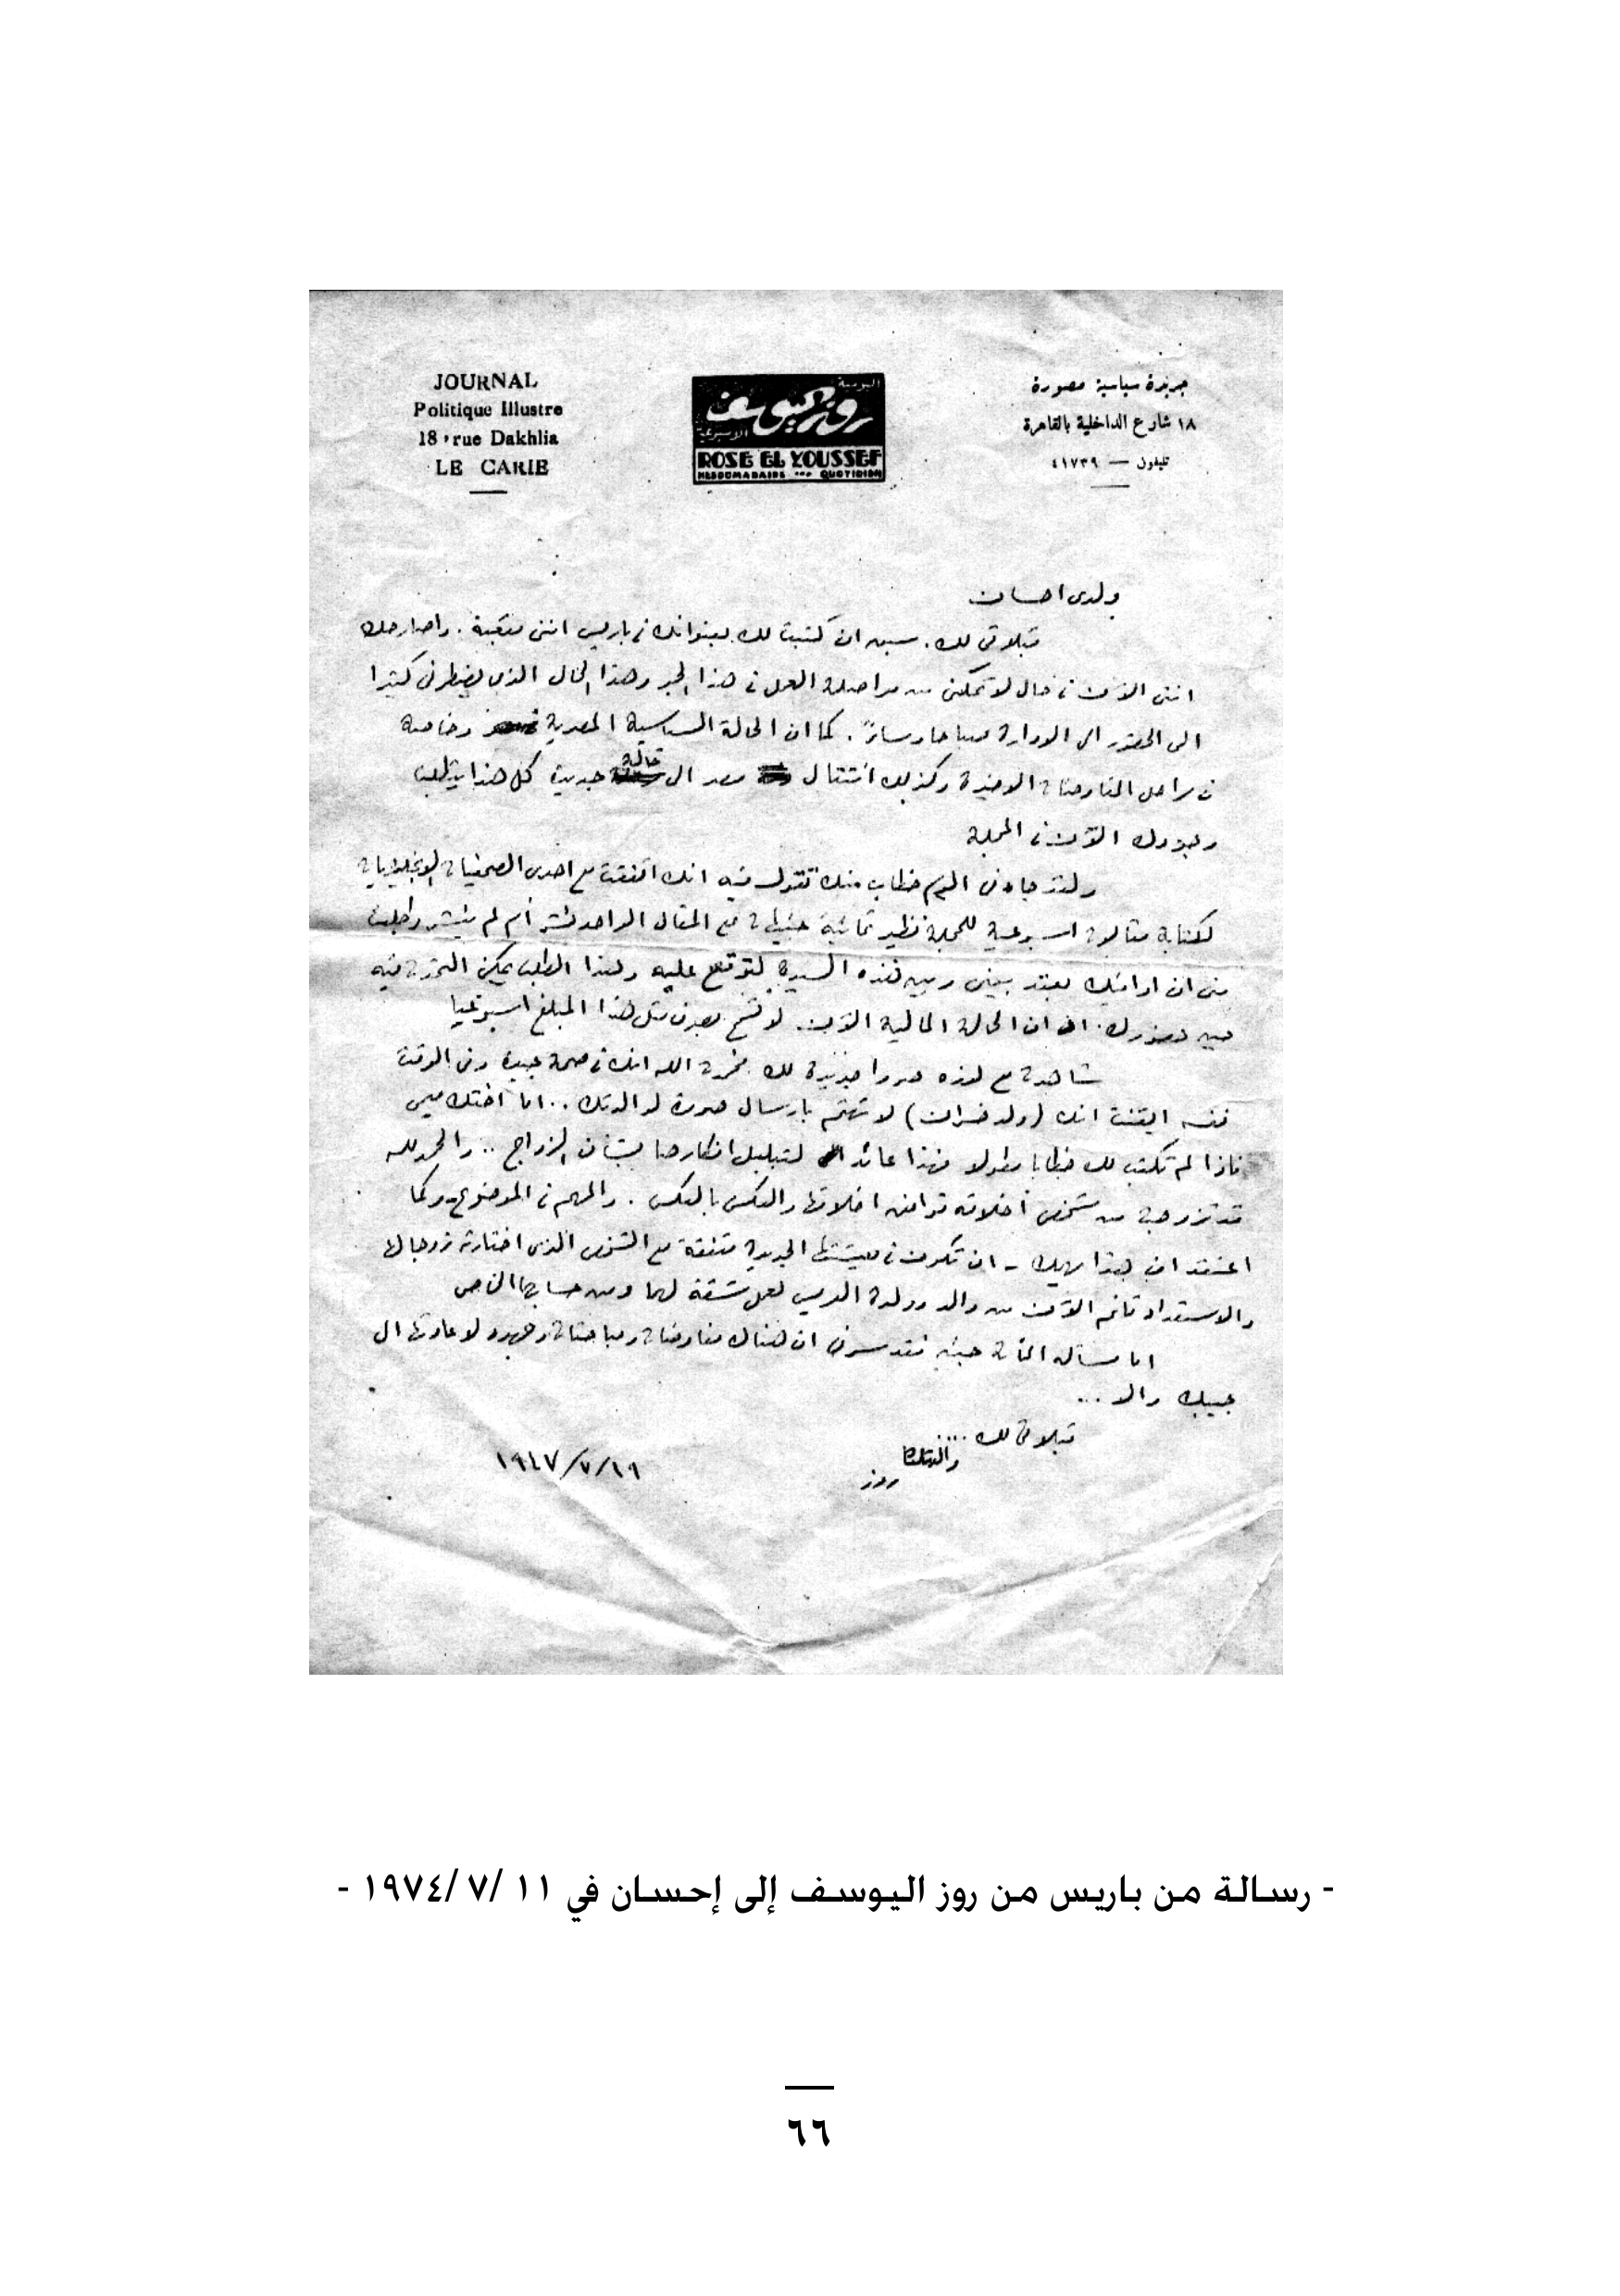 JOURNAL
Politique Illustre
18, rue Dakhlia
LE CARIE
اليومية
روز اليوسف
الاسبوعية
ROSE EL YOUSSEF
HEBDOMADAIRE ... QUOTIDIEN
جريدة سياسية مصورة
١٨ شارع الداخلية بالقاهرة
تليفون — ٤١٧٣٩
ولدى احسان
قبلاتى لك. سبق ان كتبت لك بعنوانك فى باريس اننى متعبة. واصارحك
اننى الآن فى حال لا تمكنى من مواصلة العمل فى هذا الحر وهذا الحال الذى يضطرنى كثيرا
الى الحضور الى الادارة صباحا ومساءً. كما ان الحالة السياسية المصرية وخاصة
فى مراحل المفاوضات الاخيرة وكذلك انتقال مصر الى حالة جديدة كل هذا يتطلب
وجودك الآن فى المجلة
ولقد جاءنى اليوم خطاب منك تقول فيه انك اتفقت مع احدى الصحفيات الانجليزيات
لكتابة مقالات اسبوعية للمجلة نظير ثمانية جنيهات عن المقال الواحد نشر أم لم ينشر وطلبت
منى ان اوافيك بعقد بينى وبين هذه السيدة لتوقع عليه وهذا الطلب يمكن التحدث فيه
حين حضورك. ان الحالة المالية الآن لا تسمح بصرف مثل هذا المبلغ اسبوعيا
شاهدت مع لوله صورا جديدة لك فحمدت الله انك فى صحة جيدة وفى الوقت
نفسه ايقنت انك (ولد خسران) لا تهتم بارسال صورة لوالدتك .. اما اختك ميمى
فاذا لم تكتب لك خطابا مطولا فهذا عائد لتبلبل افكارها بشأن الزواج .. والحمد لله
قد تزوجت من شخص أخلاقه توافق اخلاقها والعكس بالعكس. والمهم فى الموضوع - وكما
اعتقد ان هذا يهمك - ان تكون فى معيشتها الجديدة متفقة مع الشخص الذى اختارته زوجا لها
والاستعداد قائم الآن من والد ووالدة العريس لعمل شقة لهما ومن حسابهما الخاص
اما مسألة المائة جنيه فقد سرنى ان هناك مفاوضات ومباحثات وجهود لاعادتها الى
جيبك والا ...
قبلاتى لك ....
والدتك
روز
١٩/٧/١٩٤٧
- رسالة من باريس من روز اليوسف إلى إحسان في ١١ /٧ /١٩٧٤ -
٦٦